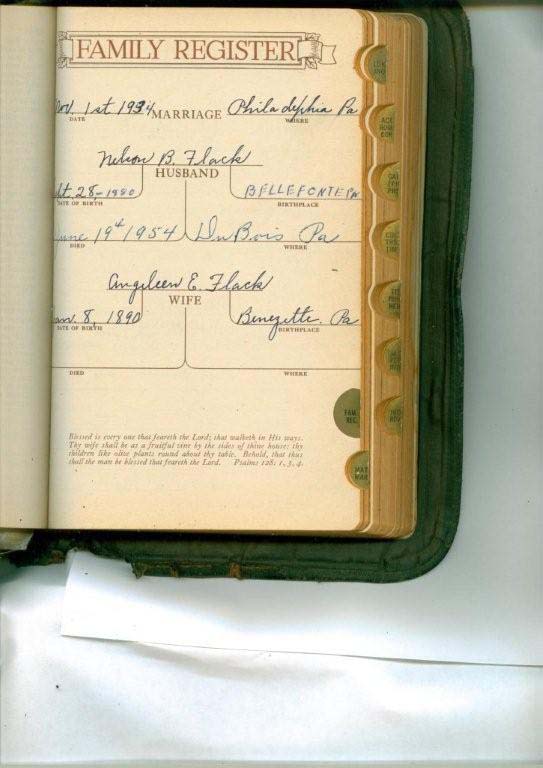 FAMILY REGISTER
1st 1934 MARRIAGE Philadelphia Pa
DATE WHERE
Nelson B. Flack
HUSBAND
28, 1880 BELLEFONTE PA
DATE OF BIRTH BIRTHPLACE
19 1954 DuBois Pa
DIED WHERE
Angileen E. Flack
WIFE
8, 1890 Benezette. Pa
DATE OF BIRTH BIRTHPLACE
DIED WHERE
FAM. REC.
Blessed is every one that feareth the Lord; that walketh in His ways.
Thy wife shall be as a fruitful vine by the sides of thine house: thy
children like olive plants round about thy table. Behold, that thus
shall the man be blessed that feareth the Lord. Psalms 128: 1, 3, 4.
MAT
MAR